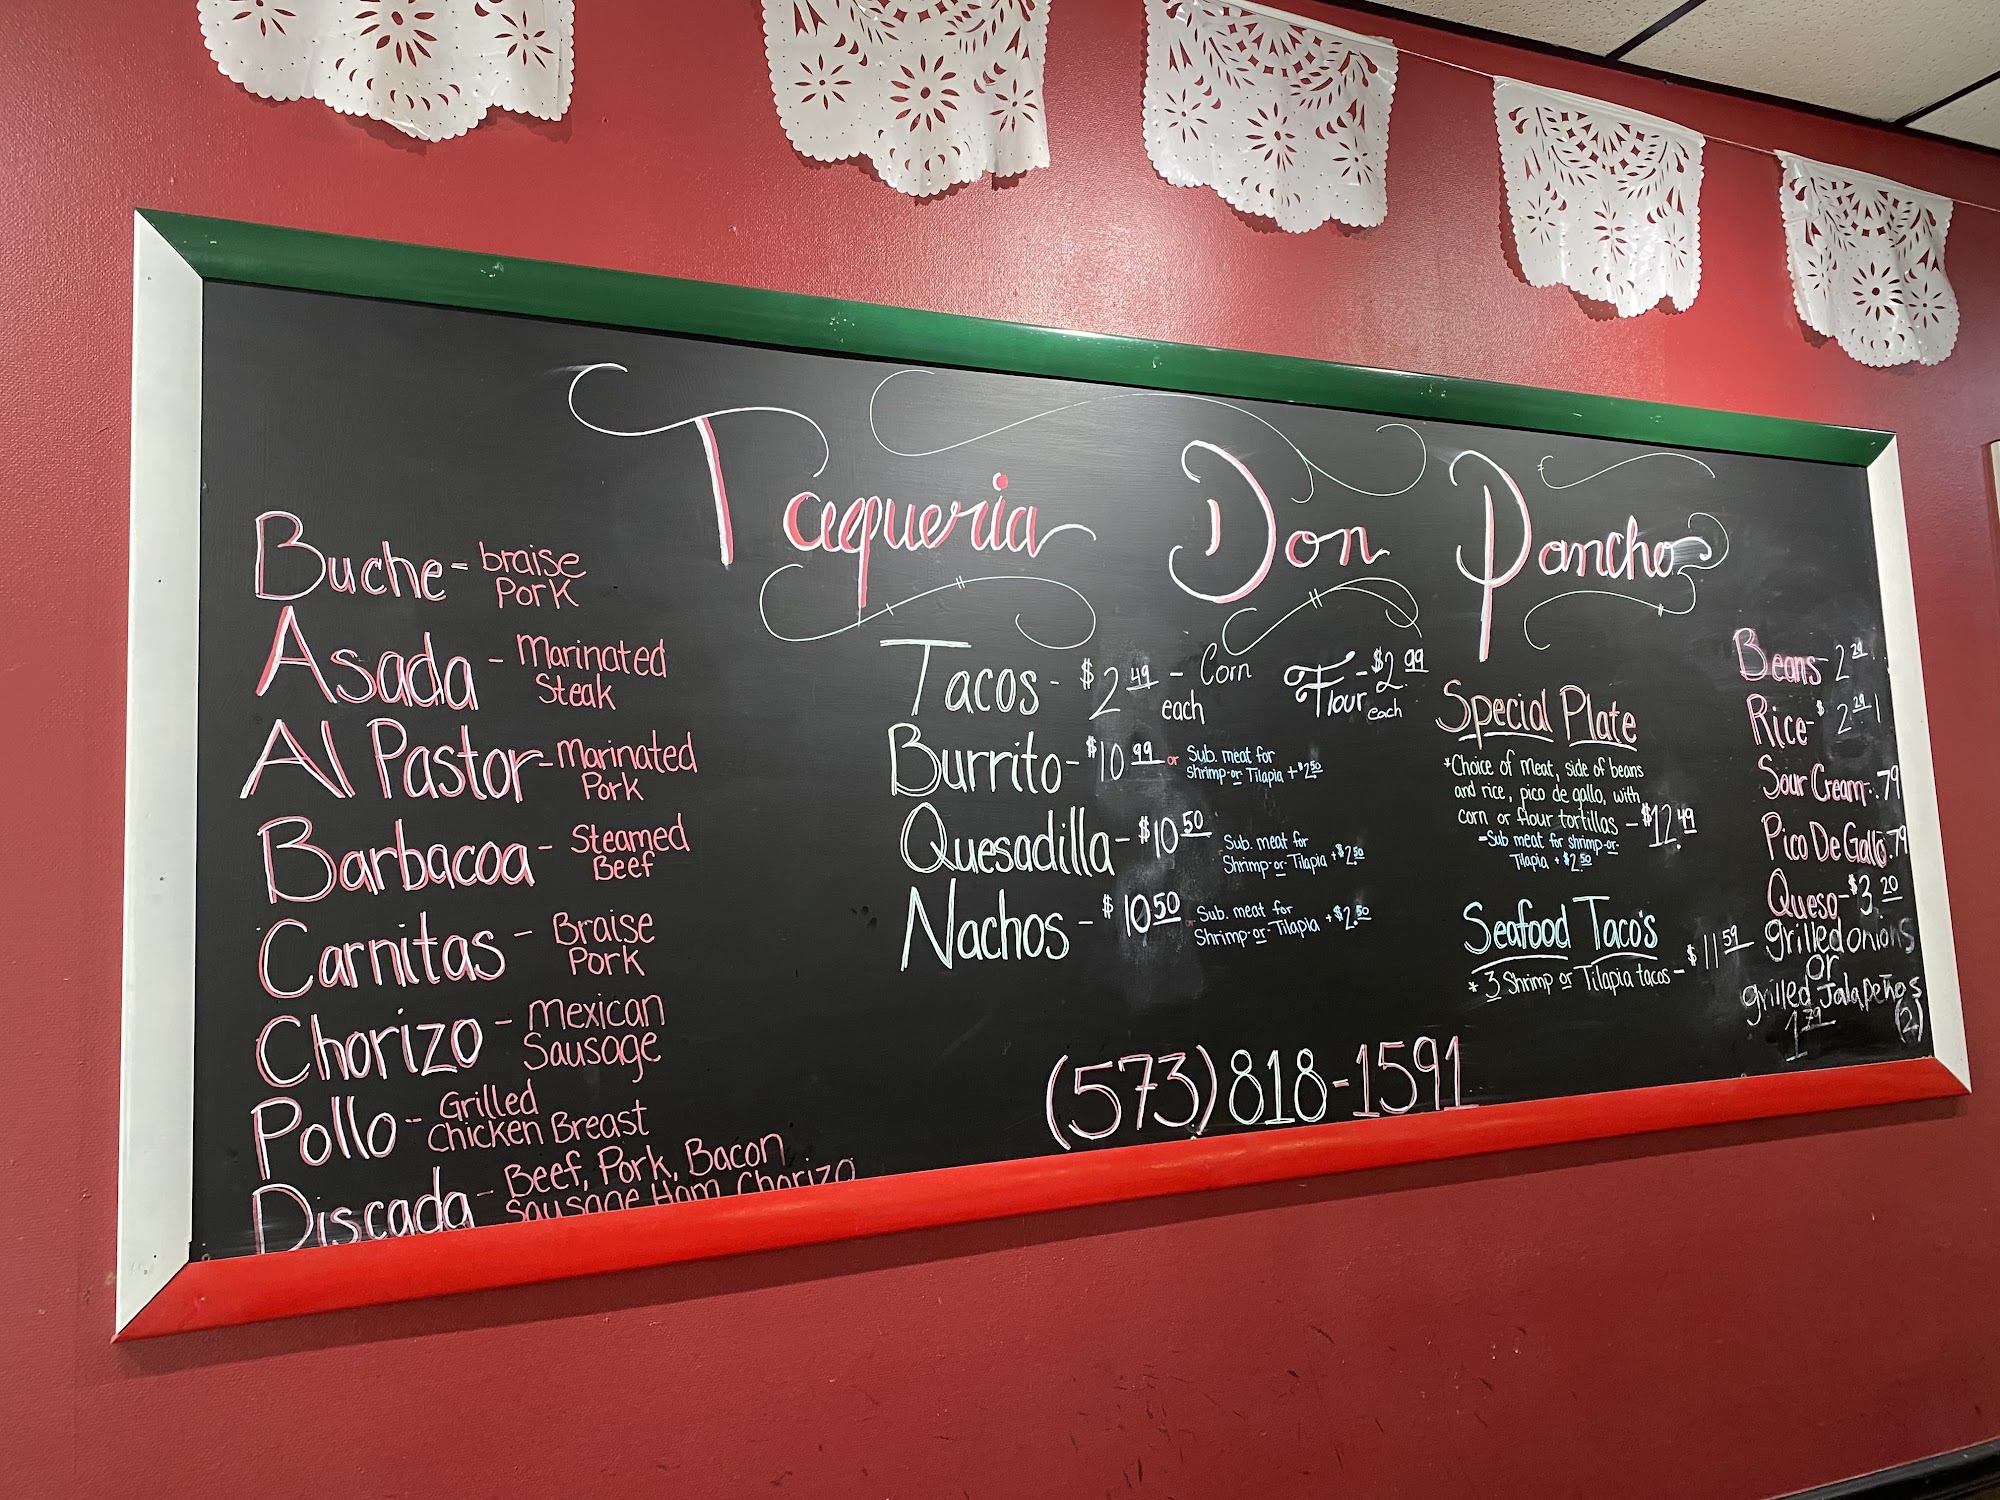 Taqueria Don Pancho
Buche - braise
Pork
Asada - Marinated
Steak
Al Pastor - Marinated
Pork
Barbacoa - Steamed
Beef
Carnitas - Braise
Pork
Chorizo - Mexican
Sausage
Pollo - Grilled
Chicken Breast
Discada - Beef, Pork, Bacon
Sausage Ham Chorizo
Tacos - $2.49 - Corn
each
Flour - $2.99
each
Burrito - $10.99 or Sub. meat for
Shrimp or Tilapia + $2.50
Quesadilla - $10.50 Sub. meat for
Shrimp or Tilapia + $2.50
Nachos - $10.50 or Sub. meat for
Shrimp or Tilapia + $2.50
Special Plate
*Choice of Meat, side of beans
and rice, pico de gallo, with
corn or flour tortillas - $12.49
- Sub meat for shrimp or
Tilapia + $2.50
Seafood Taco's
* 3 Shrimp or Tilapia tacos - $11.59
Beans - 2.29
Rice - $2.29
Sour Cream - .79
Pico De Gallo .79
Queso - $3.20
grilled onions
or
grilled Jalapeños
1.79 (2)
(573) 818-1591